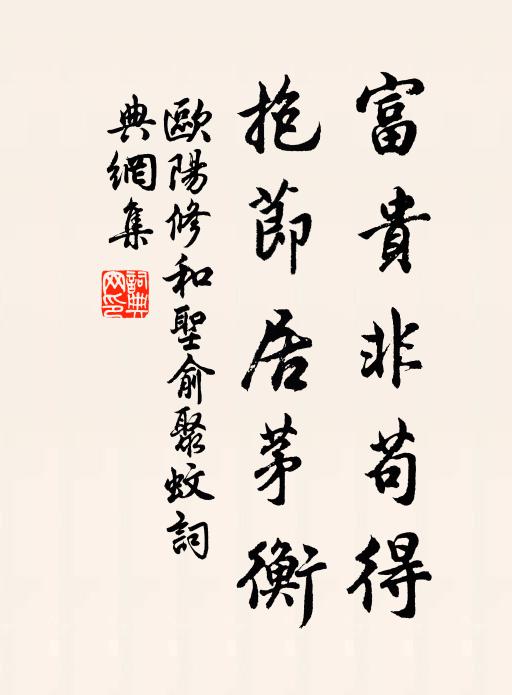 富貴非苟得
抱節居茅衡
歐陽修和聖俞聚蚊詞
典網集
詞典網印